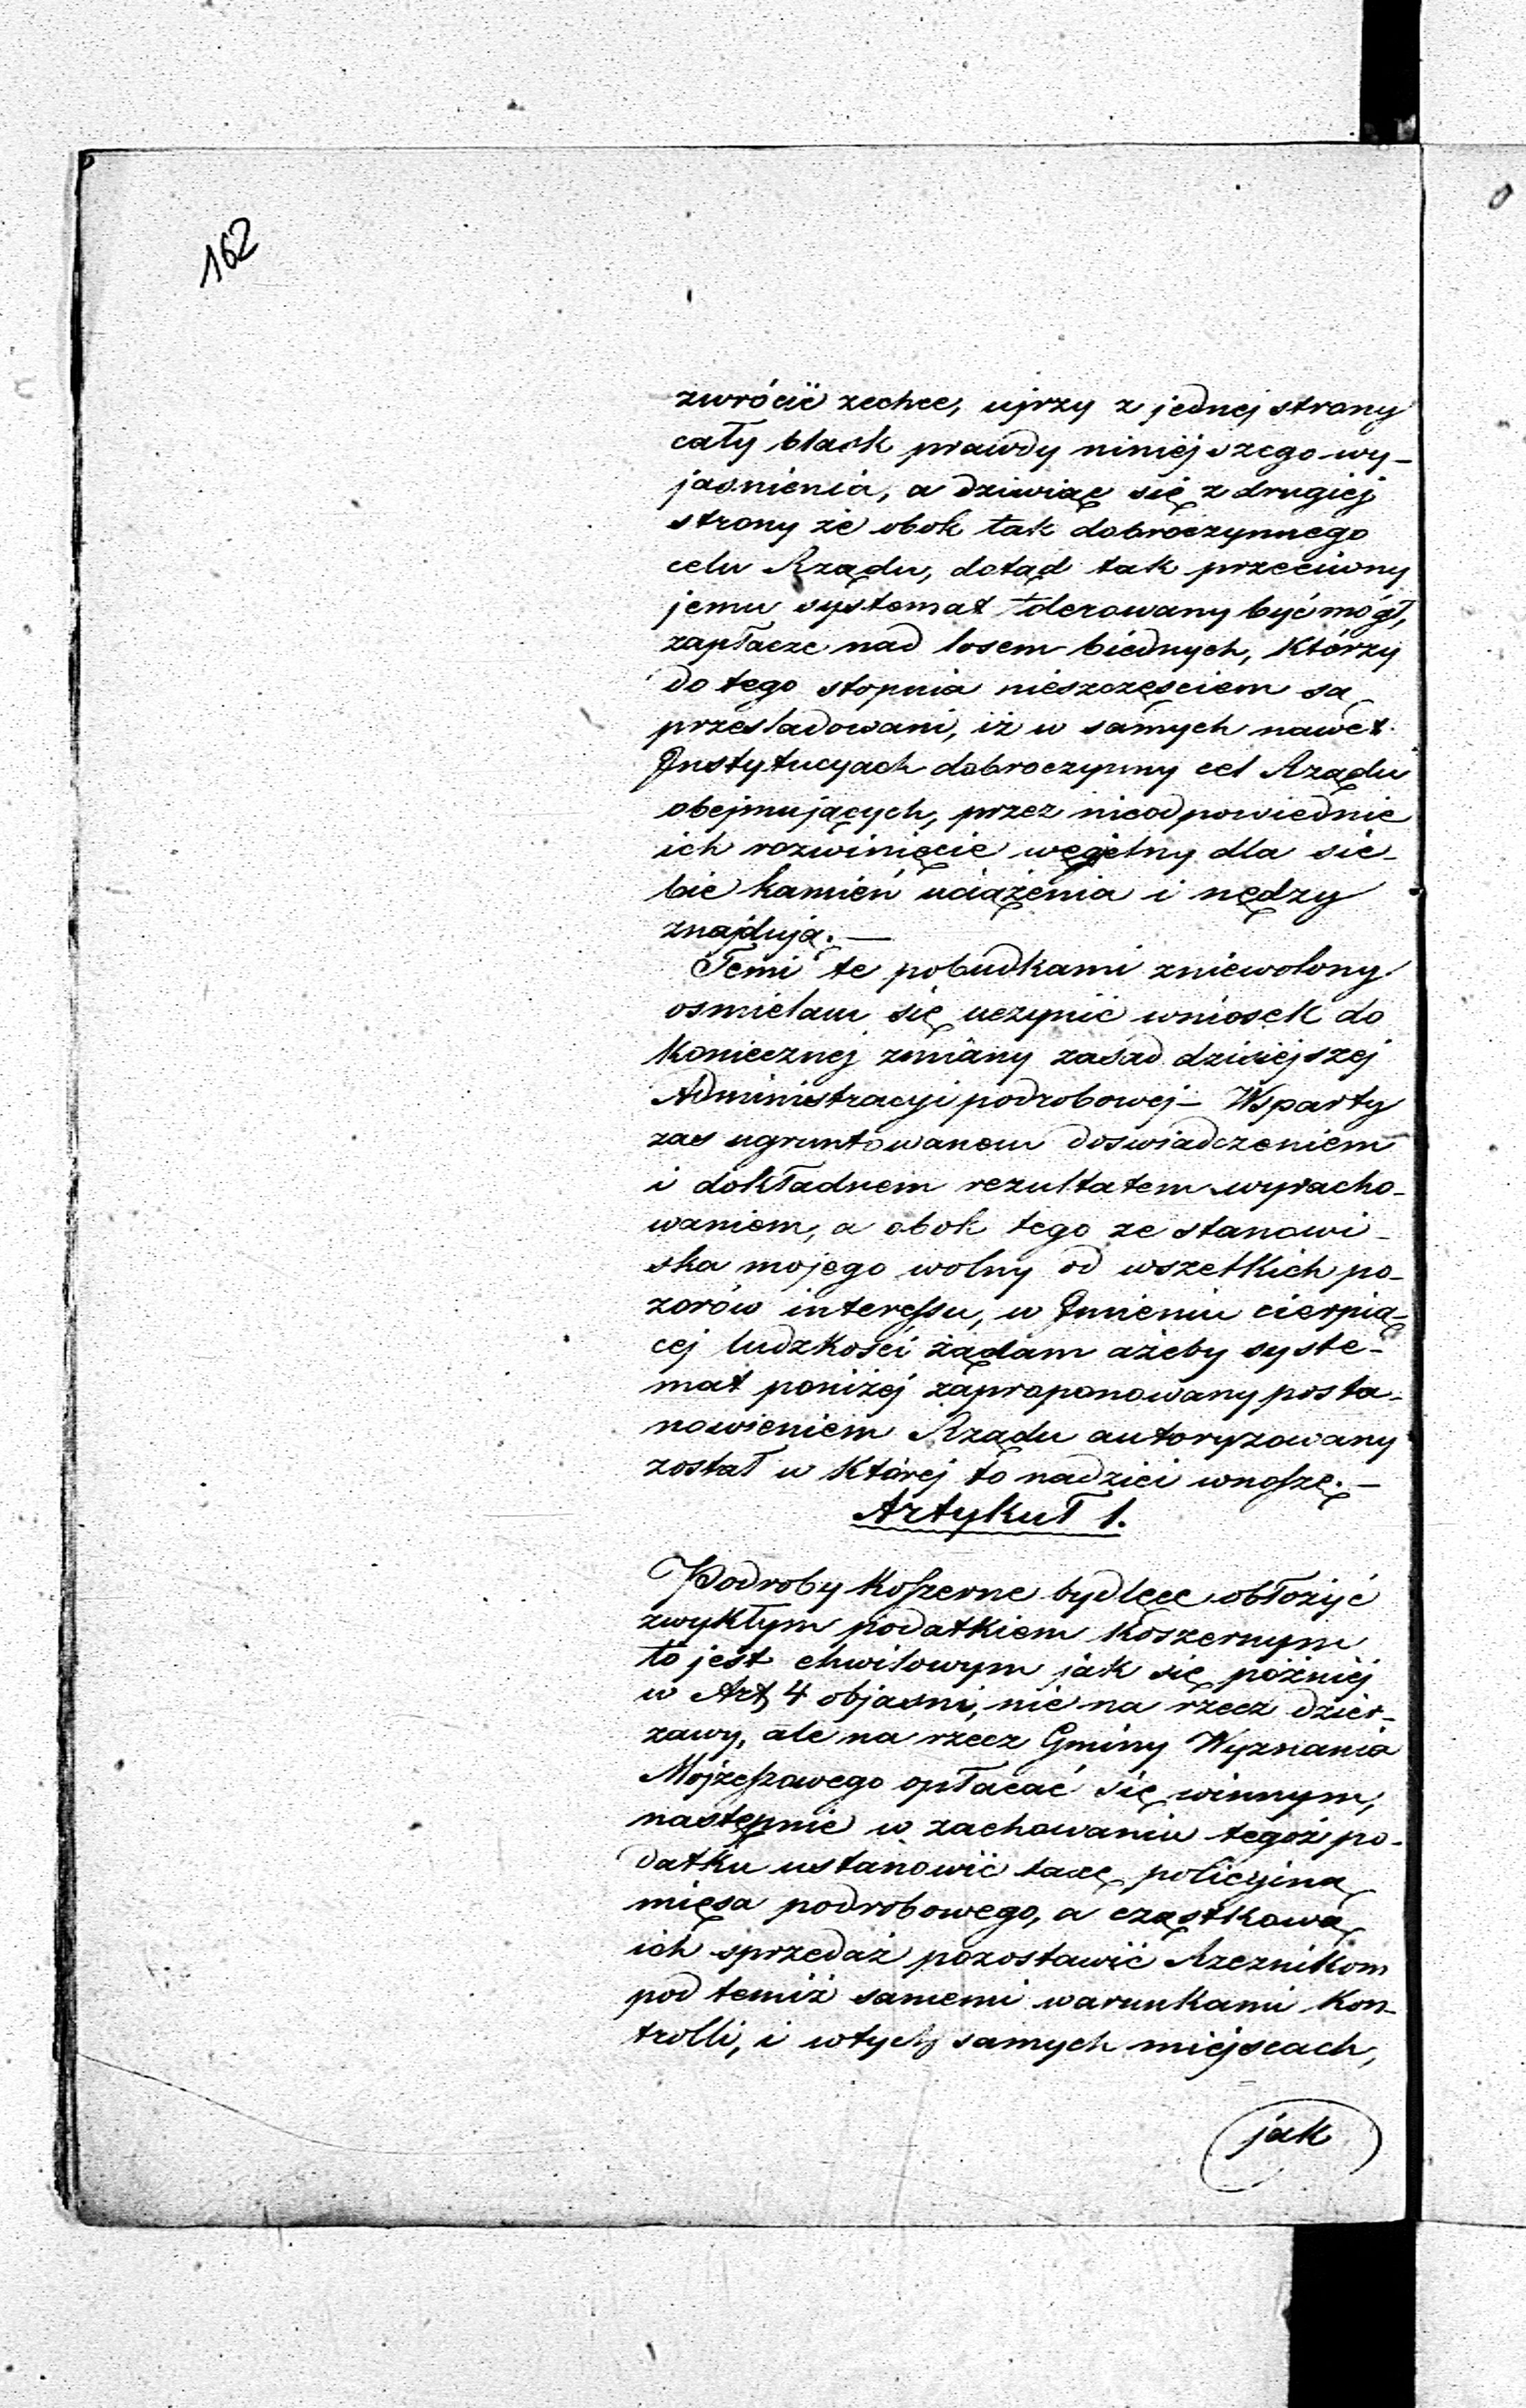 162
zwrócić zechce, ujrzy z jednej strony
cały blask prawdy niniejszego wy-
jasnienia, a dziwiąc się z drugiej
strony że obok tak dobroczynnego
celu Rządu, dotąd tak przeciwny
jemu systemat tolerowany być mógł,
zapłacze nad losem biednych, którzy
do tego stopnia nieszczęsciem są
przesladowani, iż w samych nawet
Instytucyach dobroczynny cel Rządu
obejmujących, przez nieodpowiednie
ich rozwinięcie węgelny dla sie-
bie kamień uciążenia i nędzy
znajdują.—
Temi te pobudkami zniewolony
osmielam się uczynić wniosek do
koniecznej zmiany zasad dzisiejszej
Administracyi podrobowej— Wsparty
zas ugruntowanem doswiadczeniem
i dokładnem rezultatem wyracho-
waniem, a obok tego ze stanowi-
ska mojego wolny od wszelkich po-
zorów interessu, w Imieniu cierpią-
cej ludzkości żądam ażeby syste-
mat poniżej zaproponowany posta-
nowieniem Rządu autoryzowany
został w której to nadziei wnoszę.—
Artykuł 1.
Podroby koszerne bydlęce obłożyć
zwykłym podatkiem koszernym
to jest chwilowym jak się poźniej
w Art, 4 objasni, nie na rzecz dzier-
zawy, ale na rzecz Gminy Wyznania
Mojzeszowego opłacać się winnym,
następnie w zachowaniu tegoż po-
datku ustanowić taxę policyjną
mięsa podrobowego, a cząstkową
ich sprzedaż pozostawić Rzeznikom
pod temiż samemi warunkami kon-
trolli, i w tych samych miejscach,
jak